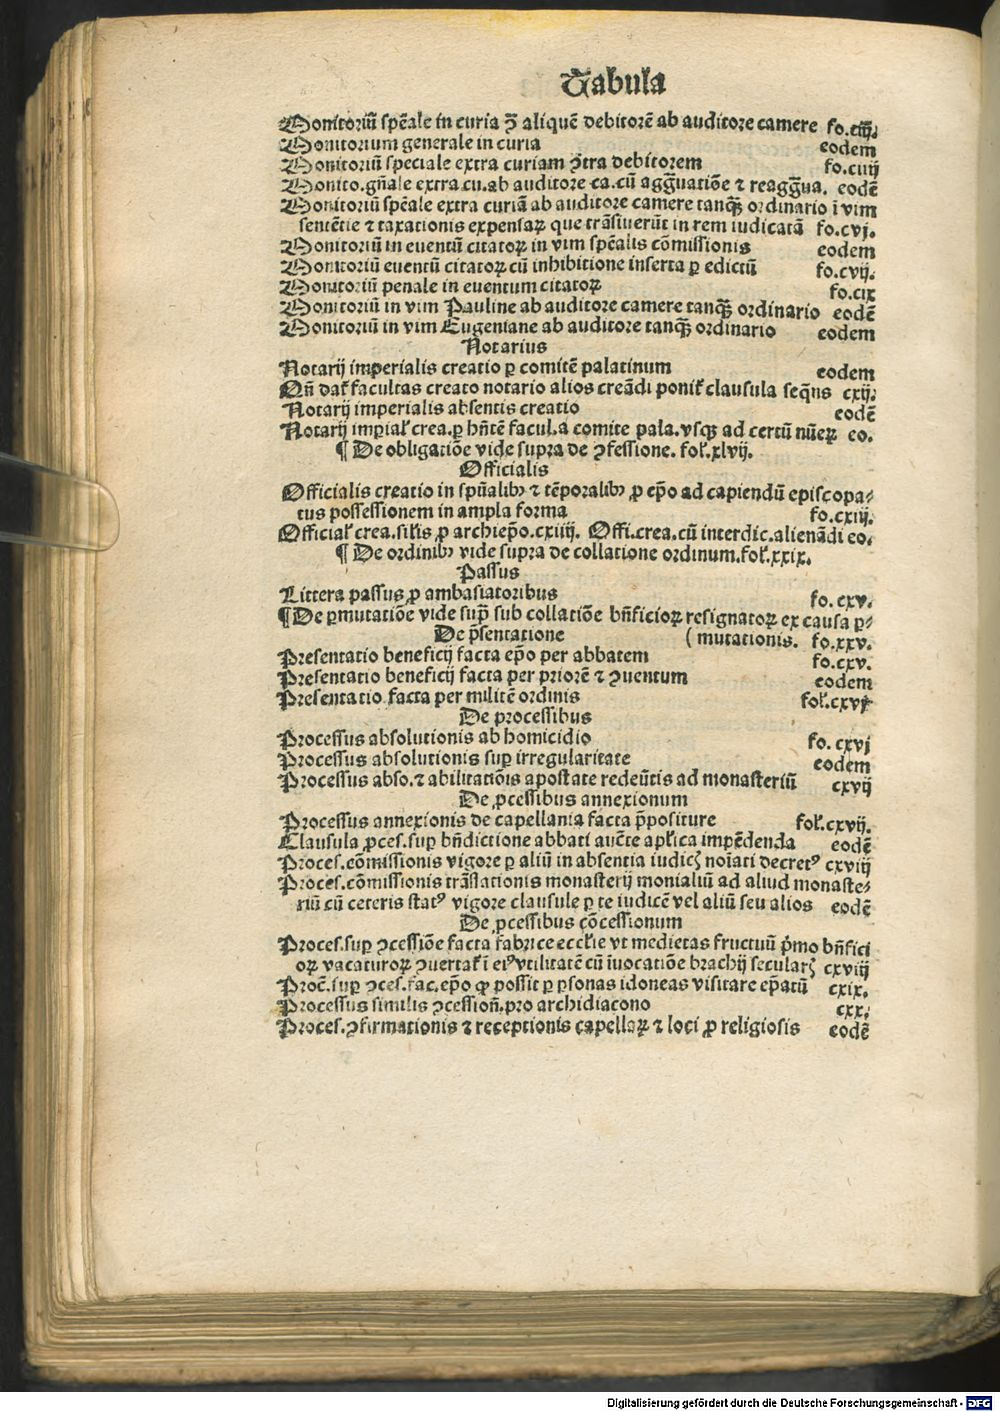 Tabula
Monitoriũ speciale in curia ꝯ̃ aliquẽ debitorẽ ab auditore camere fo.ciij.
Monitorium generale in curia eodem
Monitoriũ speciale extra curiam ꝯ̃tra debitorem fo.ciiij
Monito.gñale extra cu.ab auditore ca.cũ aggͣuatiõe ⁊ reaggͣua. eodẽ
Monitoriũ spẽale extra curiã ab auditore camere tanqͣ̃ ordinario ĩ vim
sentẽtie ⁊ taxationis expensaꝝ que trãsiuerũt in rem iudicatã fo.cvj.
Monitoriũ in euentũ citatoꝝ in vim spẽalis cõmissionis eodem
Monitoriũ euentũ citatoꝝ cũ inhibitione inserta ꝑ edictũ fo.cvij.
Monitoriũ penale in euentum citatoꝝ fo.cix
Monitoriũ in vim Pauline ab auditore camere tanqͣ̃ ordinario eodẽ
Monitoriũ in vim Eugeniane ab auditore tanqͣ̃ ordinario eodem
Notarius
Notarij imperialis creatio ꝑ comitẽ palatinum eodem
Qñ dat̃ facultas creato notario alios creãdi ponit̃ clausula seq̃ns cxij.
Notarij imperialis absentis creatio eodẽ
Notarij imꝑial̃ crea.ꝑ hñtẽ facul.a comite pala.vsqꝫ ad certũ nũerꝝ eo.
¶ De obligatiõe vide supra de ꝯfessione. fol̃.xlvij.
Officialis
Officialis creatio in spũalibꝰ ⁊ tẽporalibꝰ ꝓ ep̃o ad capiendũ episcopa⸗
tus possessionem in ampla forma fo.cxiij.
Official̃ crea.sil̃is ꝓ archiep̃o.cxiiij. Offi.crea.cũ interdic.alienãdi eo.
¶ De ordinibꝰ vide supra de collatione ordinum.fol̃.xxix.
Passus
Littera passus ꝓ ambasiatoribus fo. cxv.
¶De ꝑmutatiõe vide sup̃ sub collatiõe bñficioꝝ resignatoꝝ ex causa ꝑ⸗
De p̃sentatione (mutationis. fo.xxv.
Presentatio beneficij facta ep̃o per abbatem fo.cxv.
Presentatio beneficij facta per priorẽ ⁊ ꝯuentum eodem
Presentatio facta per militẽ ordinis fol̃.cxvj
De processibus
Processus absolutionis ab homicidio fo. cxvj
Processus absolutionis suꝑ irregularitate eodem
Processus abso.⁊ abilitatiõis apostate redeũtis ad monasteriũ cxvij
De ꝓcessibus annexionum
Processus annexionis de capellania facta p̃positure fol̃.cxvij.
Clausula ꝓces.suꝑ bñdictione abbati auc̃te apl̃ica impẽdenda eodẽ
Proces.cõmissionis vigore ꝑ aliũ in absentia iudicꝭ noĩati decretꝰ cxviij
Proces.cõmissionis trãslationis monasterij monialiũ ad aliud monaste⸗
riũ cũ ceteris statꝰ vigore clausule ꝑ te iudicẽ vel aliũ seu alios eodẽ
De ꝓcessibus cõcessionum
Proces.suꝑ ꝯcessiõe facta fabrice eccl̃ie vt medietas fructuũ p̃mo bñfici
oꝝ vacaturoꝝ ꝯuertat̃ ĩ eiꝰ vtilitatẽ cũ ĩuocatiõe brachij secularꝭ cxviij
Proc̃.suꝑ ꝯces.fac.ep̃o ꝙ possit ꝑ ꝑsonas idoneas visitare ep̃atũ cxix.
Processus similis ꝯcessioñ.pro archidiacono cxx.
Proces.ꝯfirmationis ⁊ receptionis capellaꝝ ⁊ loci ꝓ religiosis eodẽ
Digitalisierung gefördert durch die Deutsche Forschungsgemeinschaft - DFG